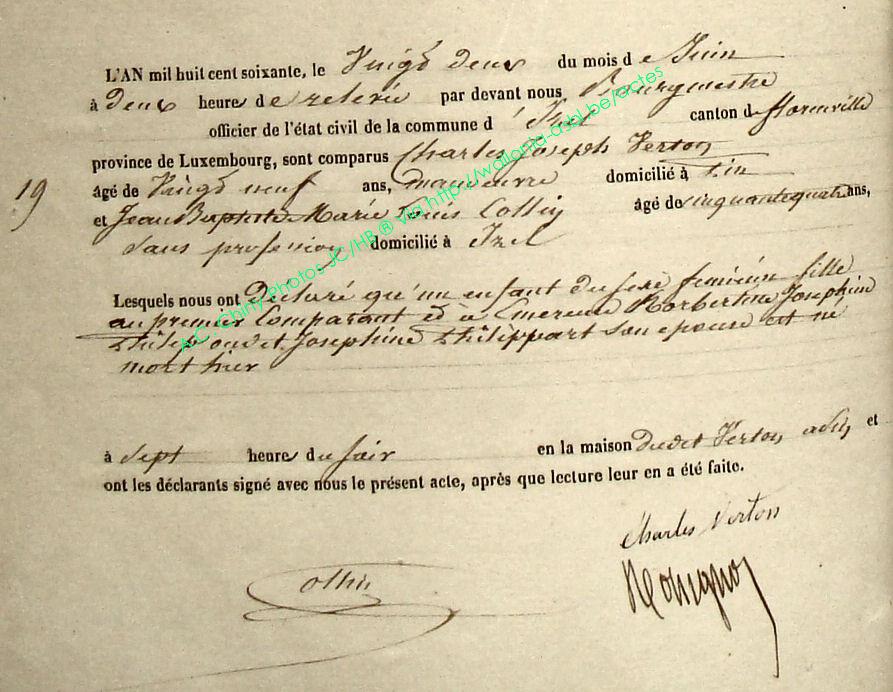 L'AN mil huit cent soixante, le Vingt deux du mois d e Juin
à Deux heures d e relevée par devant nous Bourgmestre
officier de l'état civil de la commune d 'Izel canton de florenville
province de Luxembourg, sont comparus Charles Joseph Verton
19 âgé de Vingt neuf ans, manœuvre domicilié à
et Jean Baptiste Marie Louis Collin âgé de cinquante quatre ans,
sans profession domicilié à Izel
Lesquels nous ont Déclaré qu'un enfant du sexe féminin fille
au premier Comparant et a Norbertine Joséphine
Joséphine Philippart son epouse est né
mort hier
à Sept heures du soir en la maison Dudit Verton et
ont les déclarants signé avec nous le présent acte, après que lecture leur en a été faite.
Charles Verton
AC Chiny Photos JC/HB ® via http://wallonia-asbl.be/actes